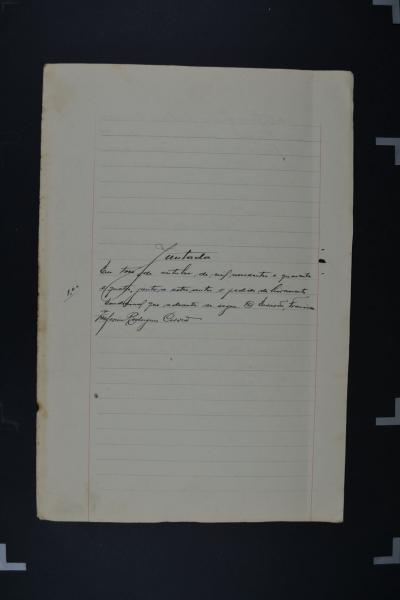 Juntada
Em treze de outubro de mil novecentos e quarenta
e quatro, junto a estes autos o pedido de livramento
condicional que adiante se segue. O Escrivão,
Rodrigues